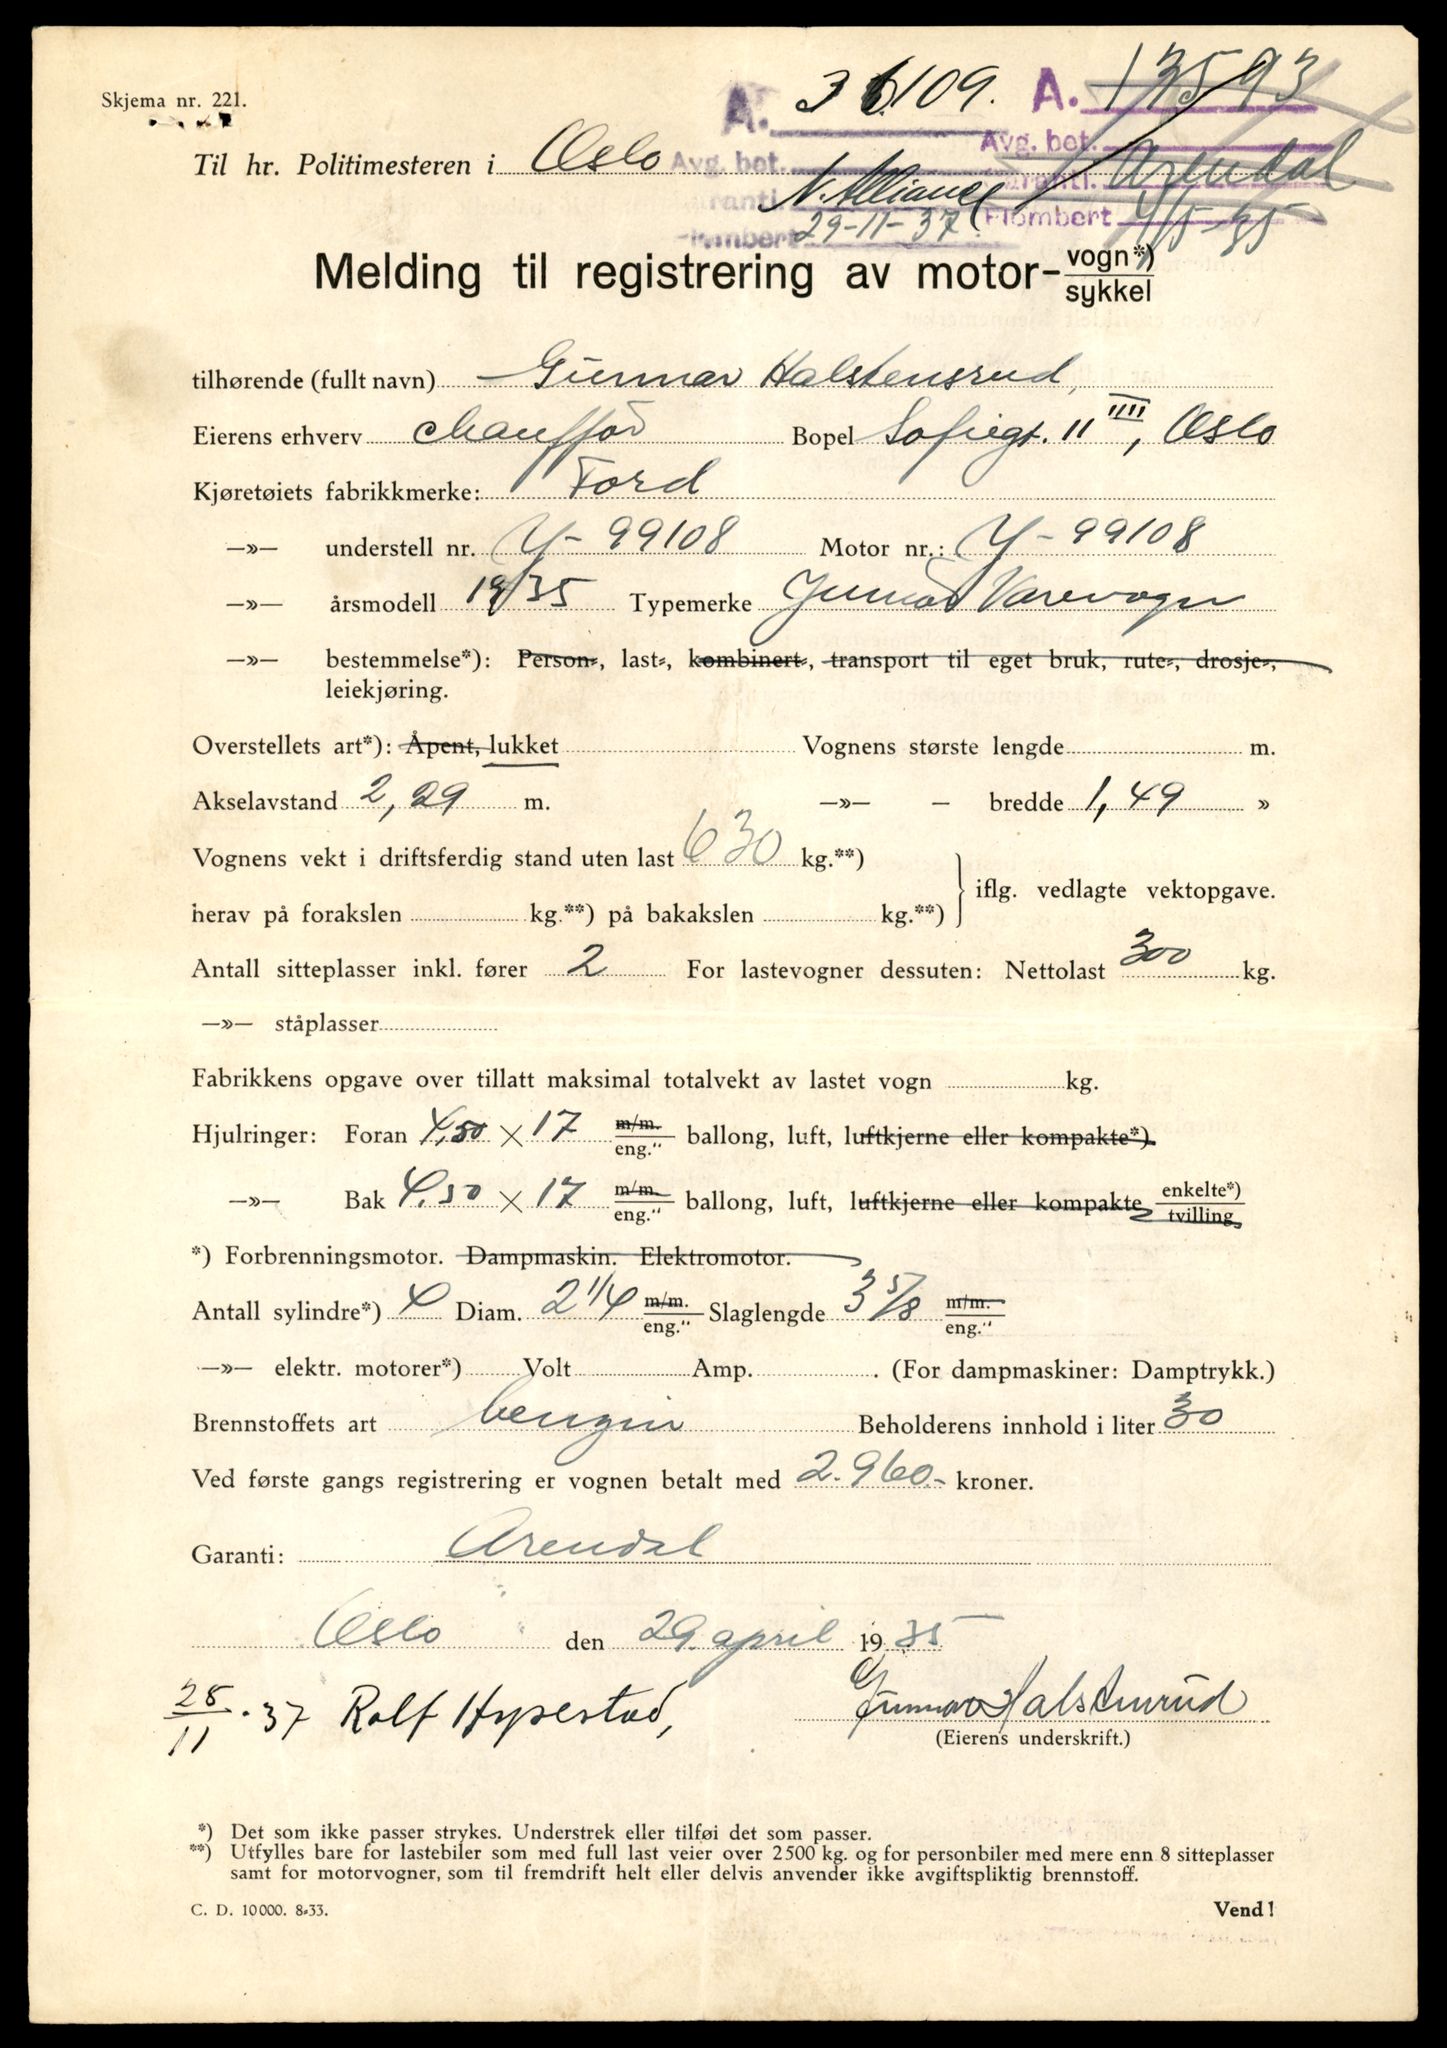 Skjema nr. 221.
A. 36109. A. 13593
Avg. bet. Avg. bet.
Til hr. Politimesteren i Oslo
Garanti. N. Alliance Garanti. Arendal
Plombert 29-11-37. Plombert 4/5-35
Melding til registrering av motor- vogn*) / sykkel
tilhørende (fullt navn) Gunnar Halstensrud,
Eierens erhverv chauffør Bopel Sofiegt. 11 III, Oslo
Kjøretøiets fabrikkmerke: Ford
—»— understell nr. Y-99108 Motor nr.: Y-99108
—»— årsmodell 1935 Typemerke Junior Varevogn
—»— bestemmelse*): Person-, last-, kombinert-, transport til eget bruk, rute-, drosje-,
leiekjøring.
Overstellets art*): Åpent, lukket Vognens største lengde m.
Akselavstand 2,29 m. —»— — bredde 1,49 »
Vognens vekt i driftsferdig stand uten last 630 kg.**)
iflg. vedlagte vektopgave.
herav på forakslen kg.**) på bakakslen kg.**)
Antall sitteplasser inkl. fører 2 For lastevogner dessuten: Nettolast 300 kg.
—»— ståplasser
Fabrikkens opgave over tillatt maksimal totalvekt av lastet vogn kg.
Hjulringer: Foran 4,50 × 17 m/m. / eng." ballong, luft, luftkjerne eller kompakte*).
—»— Bak 4,50 × 17 m/m. / eng." ballong, luft, luftkjerne eller kompakte, enkelte*) / tvilling.
*) Forbrenningsmotor. Dampmaskin. Elektromotor.
Antall sylindre*) 4 Diam. 2 1/4 m/m. / eng." Slaglengde 3 5/8 m/m. / eng."
—»— elektr. motorer*) Volt Amp. . (For dampmaskiner: Damptrykk.)
Brennstoffets art bengin Beholderens innhold i liter 30
Ved første gangs registrering er vognen betalt med 2.960.- kroner.
Garanti: Arendal
Oslo den 29. april 1935
28/11.37 Rolf Hypestad, Gunnar Halstensrud
(Eierens underskrift.)
*) Det som ikke passer strykes. Understrek eller tilføi det som passer.
**) Utfylles bare for lastebiler som med full last veier over 2500 kg. og for personbiler med mere enn 8 sitteplasser
samt for motorvogner, som til fremdrift helt eller delvis anvender ikke avgiftspliktig brennstoff.
C. D. 10000. 8-33. Vend!